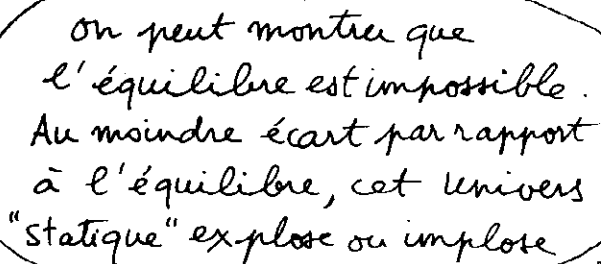 on peut montrer que
l'équilibre est impossible.
Au moindre écart par rapport
à l'équilibre, cet Univers
"statique" explose ou implose